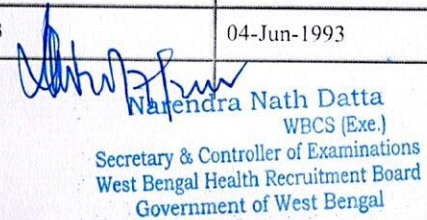 04-Jun-1993
Narendra Nath Datta
WBCS (Exe.)
Secretary & Controller of Examinations
West Bengal Health Recruitment Board
Government of West Bengal